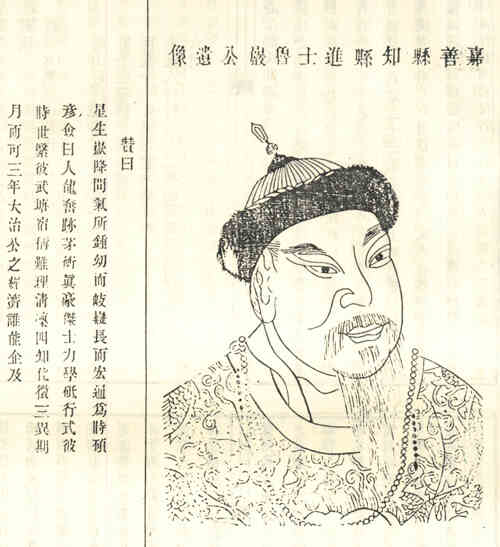 嘉善縣知縣進士魯巖公遺像
贊曰
星生嶽降間氣所鍾幼而岐嶷長而宏通爲時碩
彥僉曰人龍奮跡茅眞豪傑士力學砥行式彼
時世繄彼武塘宿難理清凜四知化徵三異期
月而可三年大治公之經濟誰能企及